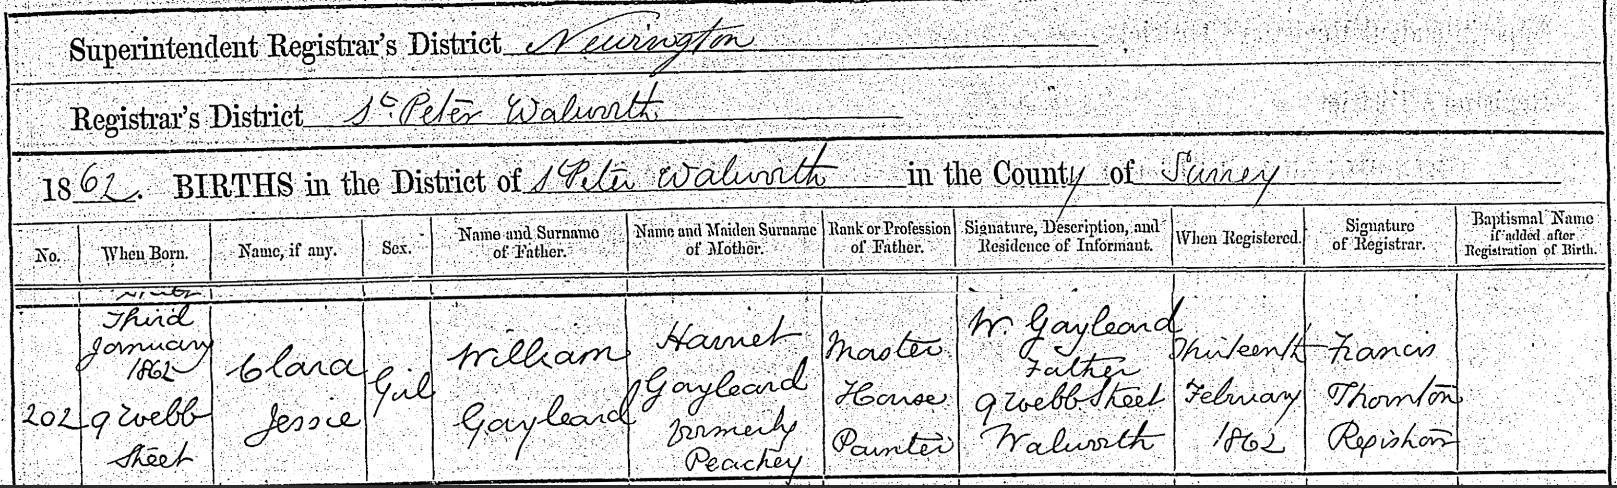 Superintendent Registrar's District Newington
Registrar's District St Peter Walworth
1862. BIRTHS in the District of St Peter Walworth in the County of Surrey
No. When Born. Name, if any. Sex. Name and Surname of Father. Name and Maiden Surname of Mother. Rank or Profession of Father. Signature, Description, and Residence of Informant. When Registered. Signature of Registrar. Baptismal Name if added after Registration of Birth.
202
Third
January
1862
9 Webb
Street
Clara
Jessie
Girl
William
Gayleard
Harriet
Gayleard
formerly
Peachey
Master
House
Painter
W. Gayleard
Father
9 Webb Street
Walworth
Thirteenth
February
1862
Francis
Thornton
Registrar